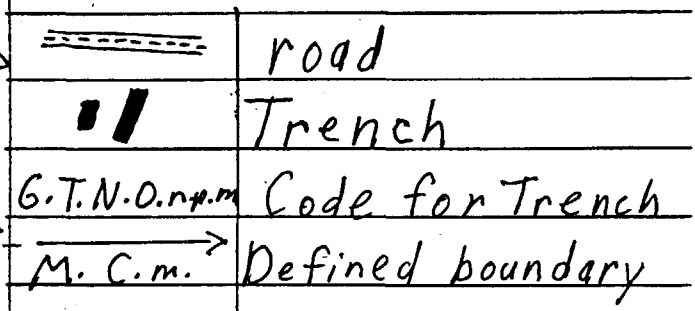 road
Trench
G.T.N.O.n.p.m Code for Trench
M. C. m. Defined boundary